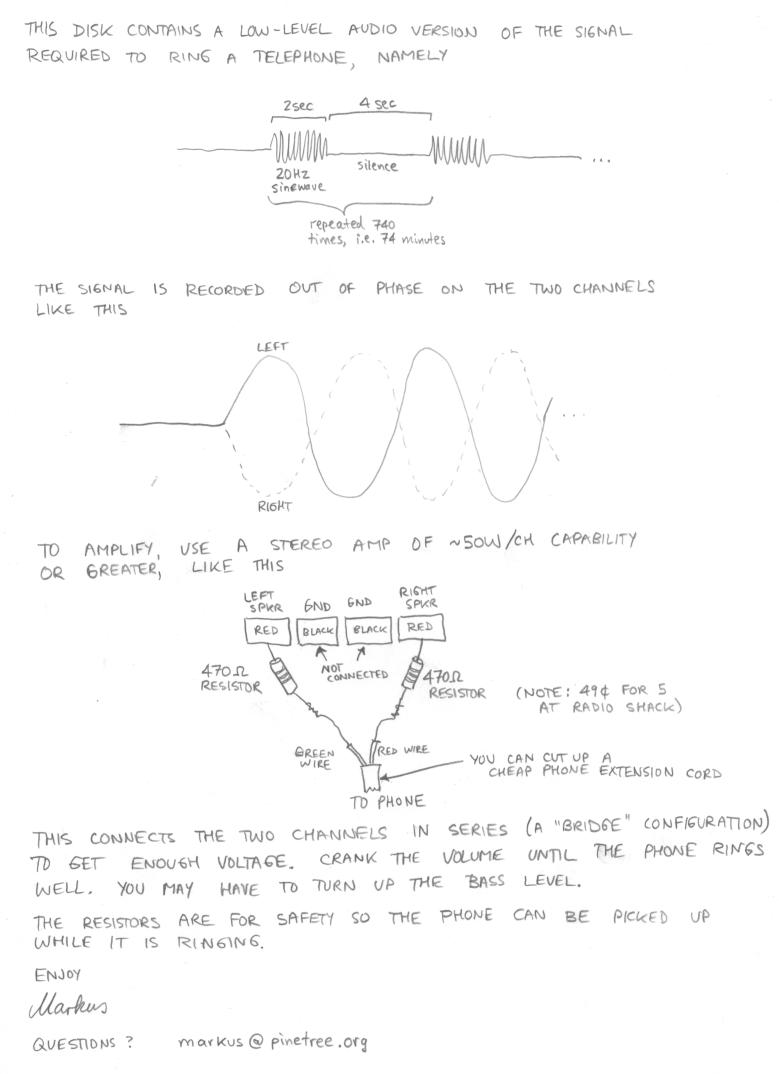 THIS DISK CONTAINS A LOW-LEVEL AUDIO VERSION OF THE SIGNAL
REQUIRED TO RING A TELEPHONE, NAMELY
2sec
4 sec
20Hz
sinewave
silence
...
repeated 740
times, i.e. 74 minutes
THE SIGNAL IS RECORDED OUT OF PHASE ON THE TWO CHANNELS
LIKE THIS
LEFT
...
RIGHT
TO AMPLIFY, USE A STEREO AMP OF ~50W/CH CAPABILITY
OR GREATER, LIKE THIS
LEFT
SPKR
GND
GND
RIGHT
SPKR
RED
BLACK
BLACK
RED
NOT
CONNECTED
470Ω
RESISTOR
470Ω
RESISTOR
(NOTE: 49¢ FOR 5
AT RADIO SHACK)
GREEN
WIRE
RED WIRE
YOU CAN CUT UP A
CHEAP PHONE EXTENSION CORD
TO PHONE
THIS CONNECTS THE TWO CHANNELS IN SERIES (A "BRIDGE" CONFIGURATION)
TO GET ENOUGH VOLTAGE. CRANK THE VOLUME UNTIL THE PHONE RINGS
WELL. YOU MAY HAVE TO TURN UP THE BASS LEVEL.
THE RESISTORS ARE FOR SAFETY SO THE PHONE CAN BE PICKED UP
WHILE IT IS RINGING.
ENJOY
Markus
QUESTIONS? markus@pinetree.org